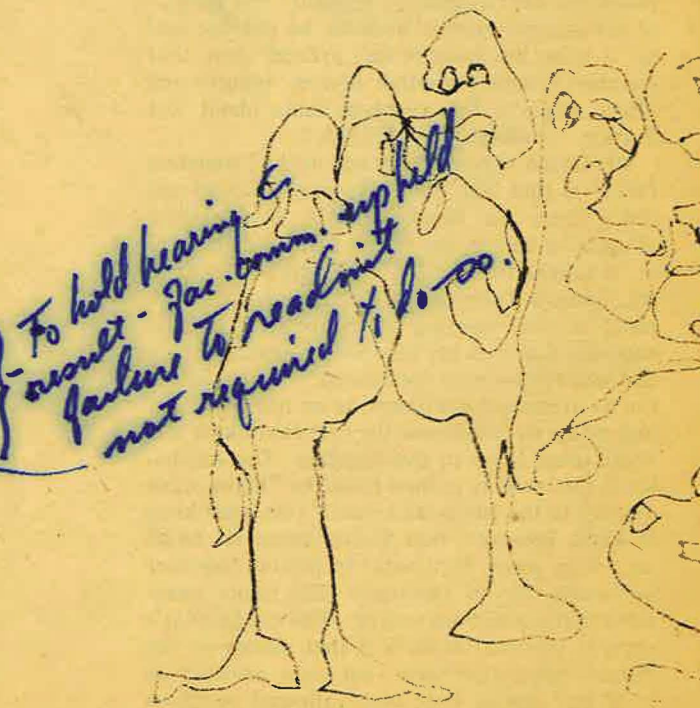 - To hold hearing &
- result - Fac. Comm. upheld
failure to readmit
not required to do so.